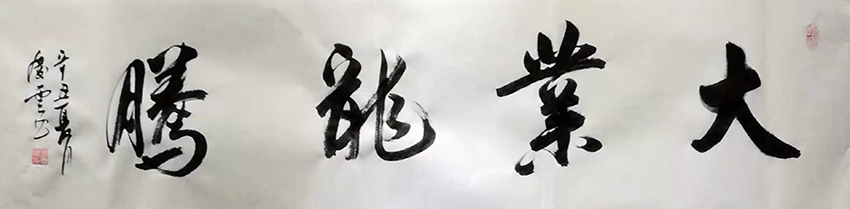 大業龍騰
辛丑夏月
慶雲